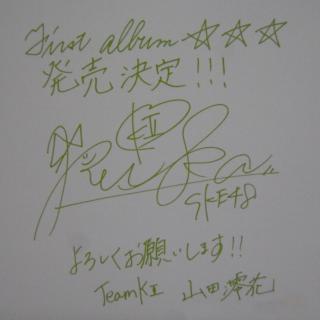 First album ☆☆☆
発売決定!!!
KII
SKE48
よろしくお願いします!!
TeamKII 山田澪花